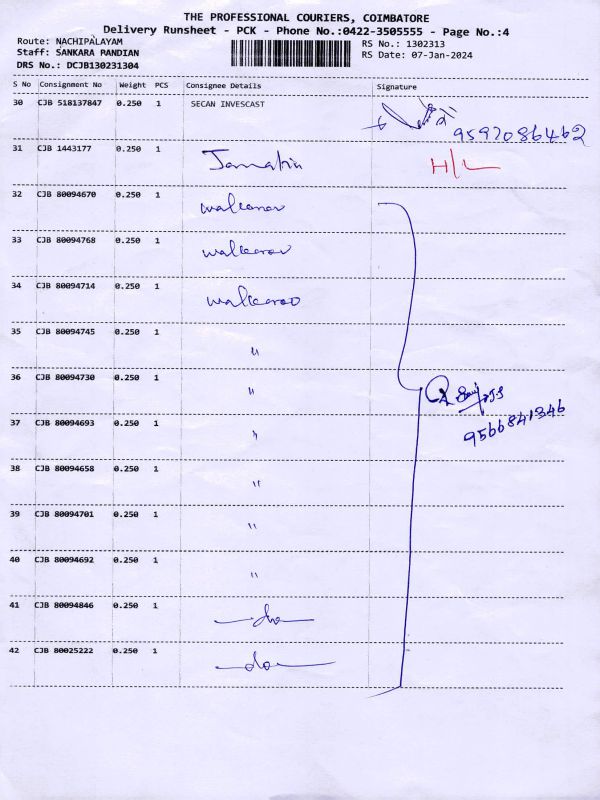 THE PROFESSIONAL COURIERS, COIMBATORE
Delivery Runsheet - PCK - Phone No.:0422-3505555 - Page No.:4
Route: NACHIPALAYAM
Staff: SANKARA PANDIAN
DRS No.: DCJB130231304
RS No.: 1302313
RS Date: 07-Jan-2024
S No Consignment No Weight PCS Consignee Details Signature
30 CJB 518137847 0.250 1 SECAN INVESCAST
9597086462
31 CJB 1443177 0.250 1 H/L
32 CJB 80094670 0.250 1
33 CJB 80094768 0.250 1
34 CJB 80094714 0.250 1
35 CJB 80094745 0.250 1 "
36 CJB 80094730 0.250 1 "
9566841346
37 CJB 80094693 0.250 1 "
38 CJB 80094658 0.250 1 "
39 CJB 80094701 0.250 1 "
40 CJB 80094692 0.250 1 "
41 CJB 80094846 0.250 1 -do-
42 CJB 80025222 0.250 1 -do-